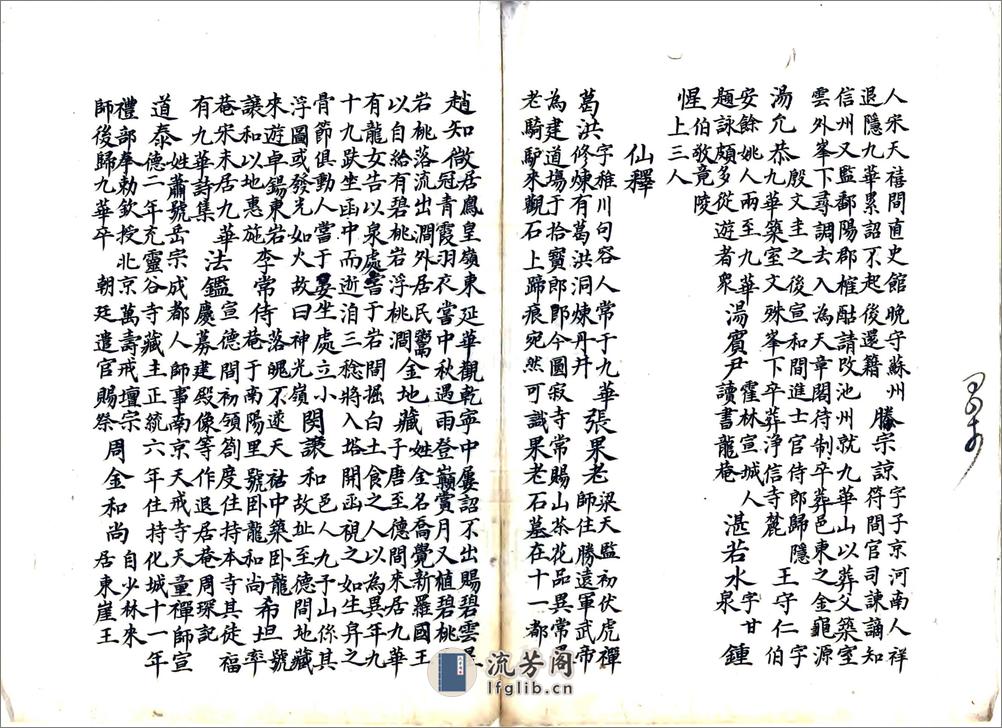 人宋天禧間直史館晚守蘇州
退隱九華累詔不起後還籍
滕宗諒
字子京河南人祥
符間官司諫謫知
信州又監鄱陽郡榷酤請改池州就九華山以葬父築室
雲外峯下尋調去入為天章閣待制卒葬邑東之金龜源
湯允恭
殷文圭之後宣和間進士官侍郎歸隱
九華築室文殊峯下卒葬淨信寺麓
王守仁
字伯
安餘姚人兩至九華
題詠頗多從遊者衆
霍林宣城人
湯賓尹讀書龍菴
湛若水
字甘
泉
鍾
惺
伯敬竟陵
上三人
仙釋
葛洪
字稚川句容人常于九華
修煉有葛洪洞煉丹井
張果老
梁天監初伏虎禪
師住勝遠軍武帝
為建道場于拾寶郎郎今圓寂寺常賜山茶花品異常
老騎驢來觀石上蹄痕宛然可識果老石墓在十一都
趙知微
居鳳皇嶺東延華觀乾寧中屢詔不出賜碧雲
冠青霞羽衣嘗中秋遇雨登巔賞月又植碧桃
岩桃落流出澗外居民鬻
以自給有碧桃岩浮桃澗
金地藏
姓金名喬覺新羅國王
子唐至德間來居九華
有龍女告以泉處嘗于岩間掘白土食之人以為異年九
十九趺坐函中而逝洎三稔將入塔開函視之如生舁之
骨節俱動人嘗于晏坐處立小
浮圖或發光如火故曰神光嶺
閔讓和
邑人九子山係其
故址至德間地藏
來遊卓錫東岩
讓和以地惠施
李常侍
落魄不遂天祐中築卧龍
菴于南陽里號卧龍和尚
希坦
號
率
菴宋末居九華
有九華詩集
法鑑
宣德間初領劄度住持本寺其徒福
慶募建殿像等作退居菴周琛記
道泰
姓蕭號岳宗成都人師事南京天戒寺天童禪師宣
德二年充靈谷寺藏主正統六年住持化城十一年
禮部奉勅欽授北京萬壽戒壇宗
師後歸九華卒
朝廷遣官賜祭
周金和尚
自少林來
居東崖王
流芳阁
lfglib.cn